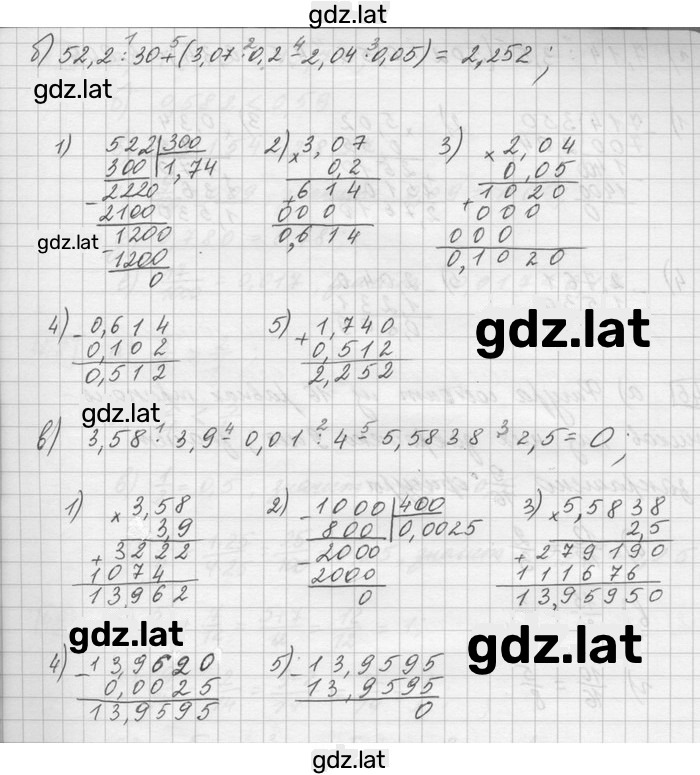 gdz.lat
б) 52,2 : 30 + (3,07 · 0,2 - 2,04 · 0,05) = 2,252;
1 5 2 4 3
gdz.lat
1) 522 300 2) 3,07 3) 2,04
300 1,74 × 0,2 × 0,05
- 2220 + 614 + 1020
2100 000 000
gdz.lat - 1200 0,614 000
1200 0,1020
0
4) - 0,614 5) + 1,740 gdz.lat
0,102 0,512
0,512 2,252
gdz.lat
в) 3,58 · 3,9 - 0,01 : 4 - 5,5838 · 2,5 = 0;
1 4 2 5 3
1) × 3,58 2) - 1000 400 3) × 5,5838
3,9 800 0,0025 2,5
+ 3222 - 2000 + 279190
1074 2000 111676
13,962 0 13,95950
gdz.lat gdz.lat
4) - 13,9620 5) - 13,9595
0,0025 13,9595
13,9595 0
gdz.lat